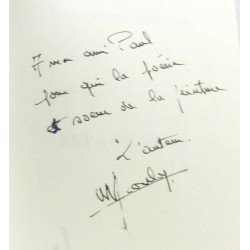 A mon ami Paul
pour qui la poésie
est soeur de la peinture
L'auteur